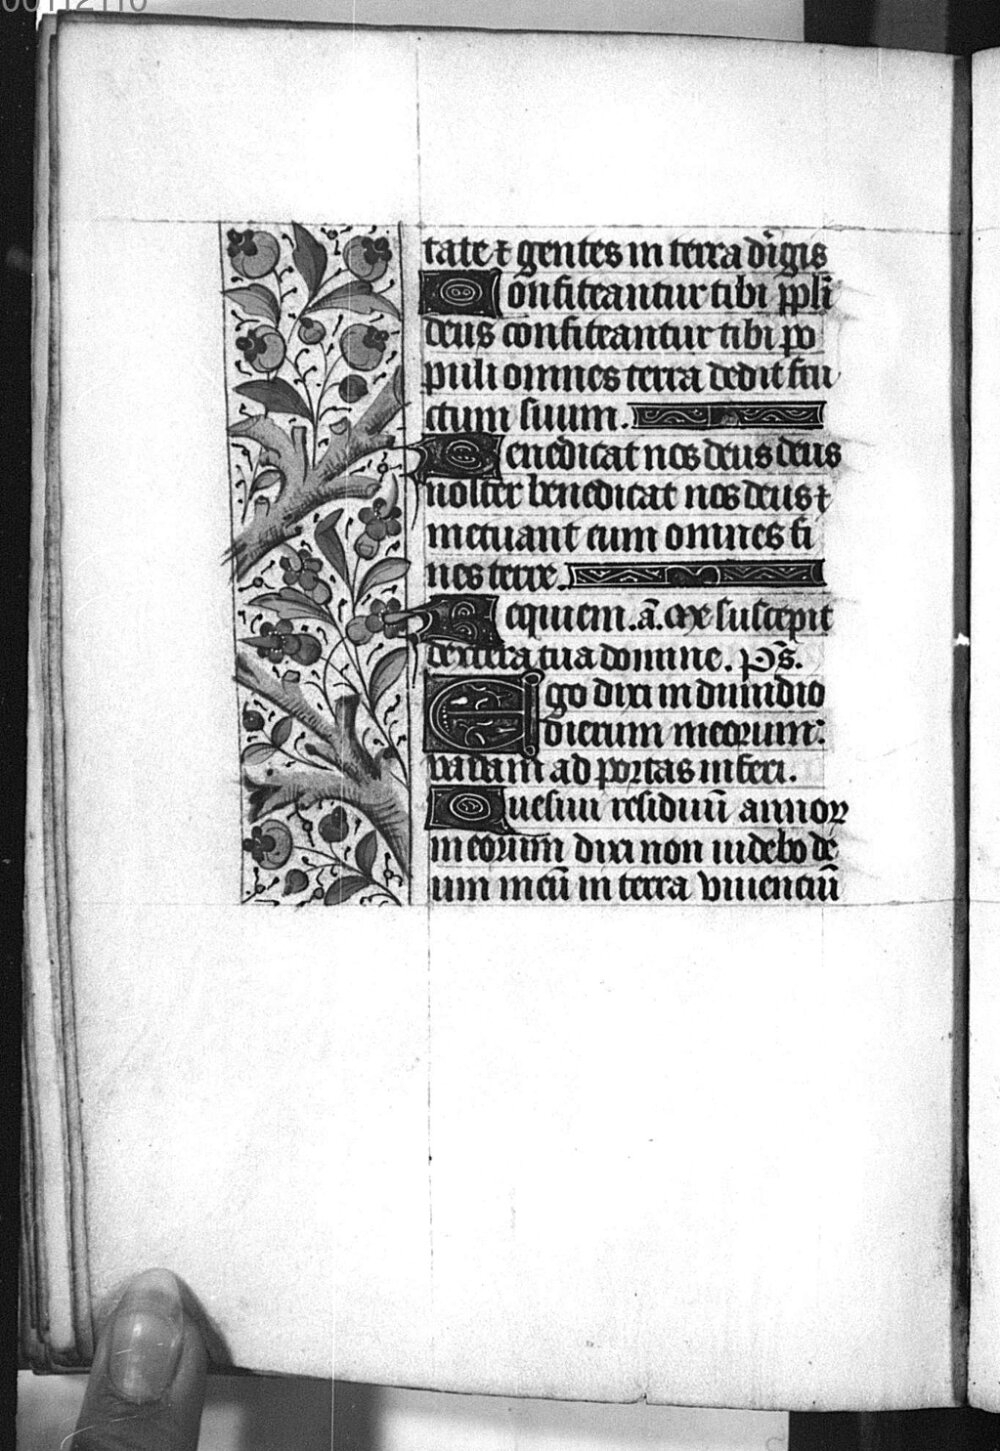 tate ⁊ gentes in terra dirigis
Confiteantur tibi ppli
deus confiteantur tibi po
puli omnes terra dedit fru
ctum suum.
Benedicat nos deus deus
noster benedicat nos deus ⁊
metuant eum omnes fi
nes terre.
Requiem. a᷃. Me suscepit
dextera tua domine. Ps̄.
Ego dixi in dimidio
dierum meorum:
vadam ad portas inferi.
Quesiui residuū annoꝝ
meorum dixi non uidebo de
um meū in terra viuenciū